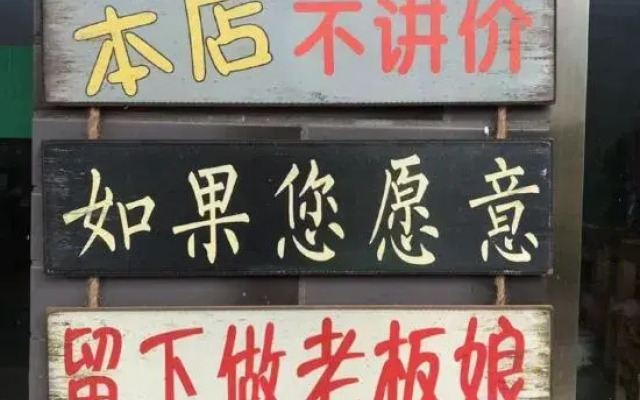 本店不讲价
如果您愿意
留下做老板娘